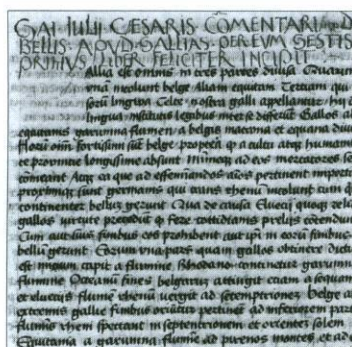 GAI IULII CÆSARIS COMENTARI D
BELLIS APVD GALLIAS PER EVM GESTIS
PRIMVS LIBER FELICITER INCIPIT
allia est omnis in tres partes divisa Quarum
una incolunt belge Aliam equitani Terciam qui
lingua Celte nostra galli apellantur hij o
lingua institutis legibus inter se differunt Gallos a
equitanis garumna flumen a belgis matrona et equana divi
Horum oim fortissimi sut belge propterea q a cultu atq humani
et provintie longissime absunt Minimeq ad eos mercatores se
comeant Atq ea que ad effeminandos aios pertinent important
proximiq sunt germanis qui trans rhenu incolunt cum q
continenter bellum gerunt Qua de causa Elvecij quoq reliq
gallos virtute precedunt q fere cottidianis preliis contendun
Cum aut suis finibus eos prohibent aut ipi in eorum finibus
bellum gerunt Eorum una pars quam gallos obtinere dictu
est initium capit a flumine Rhodano continetur garumna
flumine Occeano fines belgarum attingit etiam a sequan
et elvecijs flumen rhenu vergit ad septemtriones Belge a
extremis gallie finibus oriuntur pertinet ad inferiorem part
fluminis rheni spectant in septentrionem et orientem solem
Equitania a garumna flumine ad pireneos montes et ad